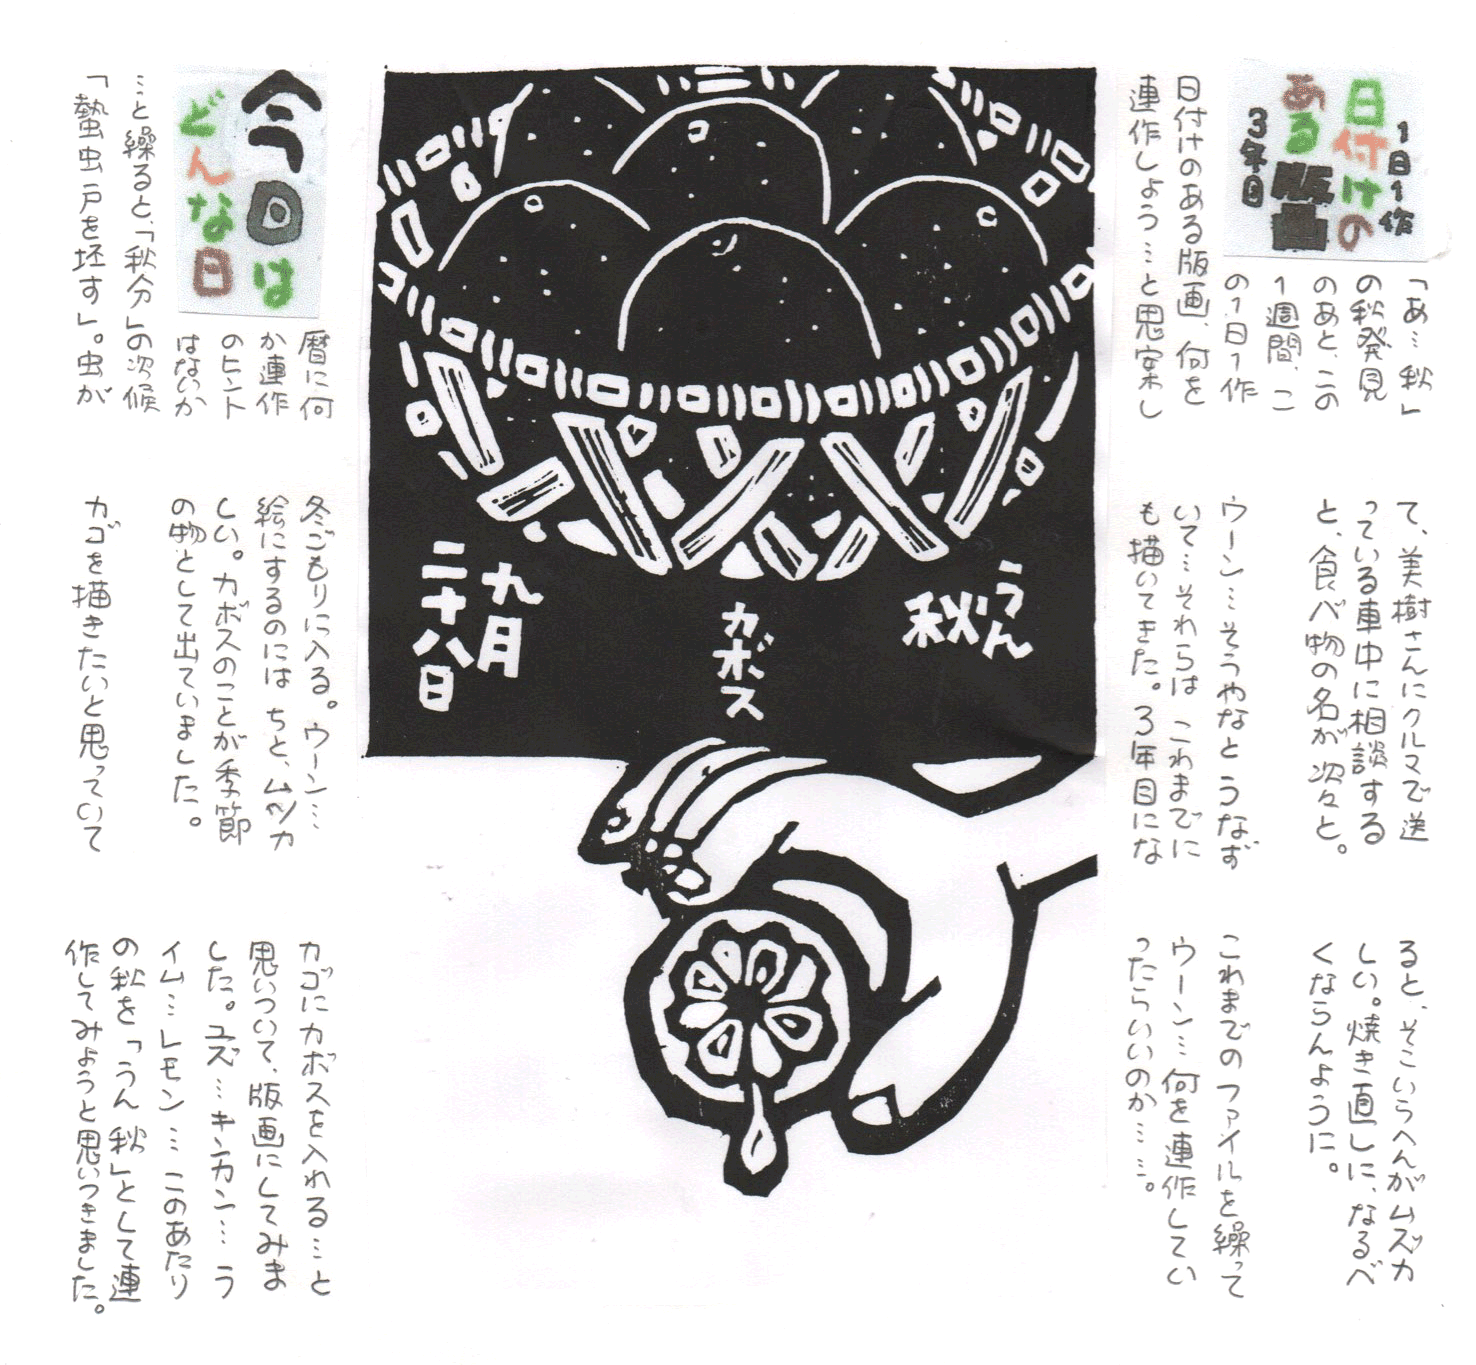 1日1作
日付けの
ある版画
3年目
「あ…秋」
の秋発見
のあと、この
1週間、こ
の1日1作
日付けのある版画、何を
連作しよう…と思案し
て、美樹さんにクルマで送
っている車中に相談する
と、食べ物の名が次々と。
ウーン…そうやなとうなず
いて…それらはこれまでに
も描いてきた。3年目にな
ると、そこいらへんがムズカ
しい。焼き直しに、なるべ
くならんように。
これまでのファイルを繰って
ウーン…何を連作してい
ったらいいのか……。
うん
秋
カボス
九月
二十八日
今回は
どんな日
暦に何
か連作
のヒント
はないか
…と繰ると、「秋分」の次候
「蟄虫戸を坯す」。虫が
冬ごもりに入る。ウーン…
絵にするのには ちと、ムツカ
しい。カボスのことが季節
の物として出ていました。
カゴを描きたいと思っていて
カゴにカボスを入れる…と
思いついて、版画にしてみま
した。ユズ…キンカン…ラ
イム…レモン…このあたり
の秋を「うん秋」として連
作してみようと思いつきました。